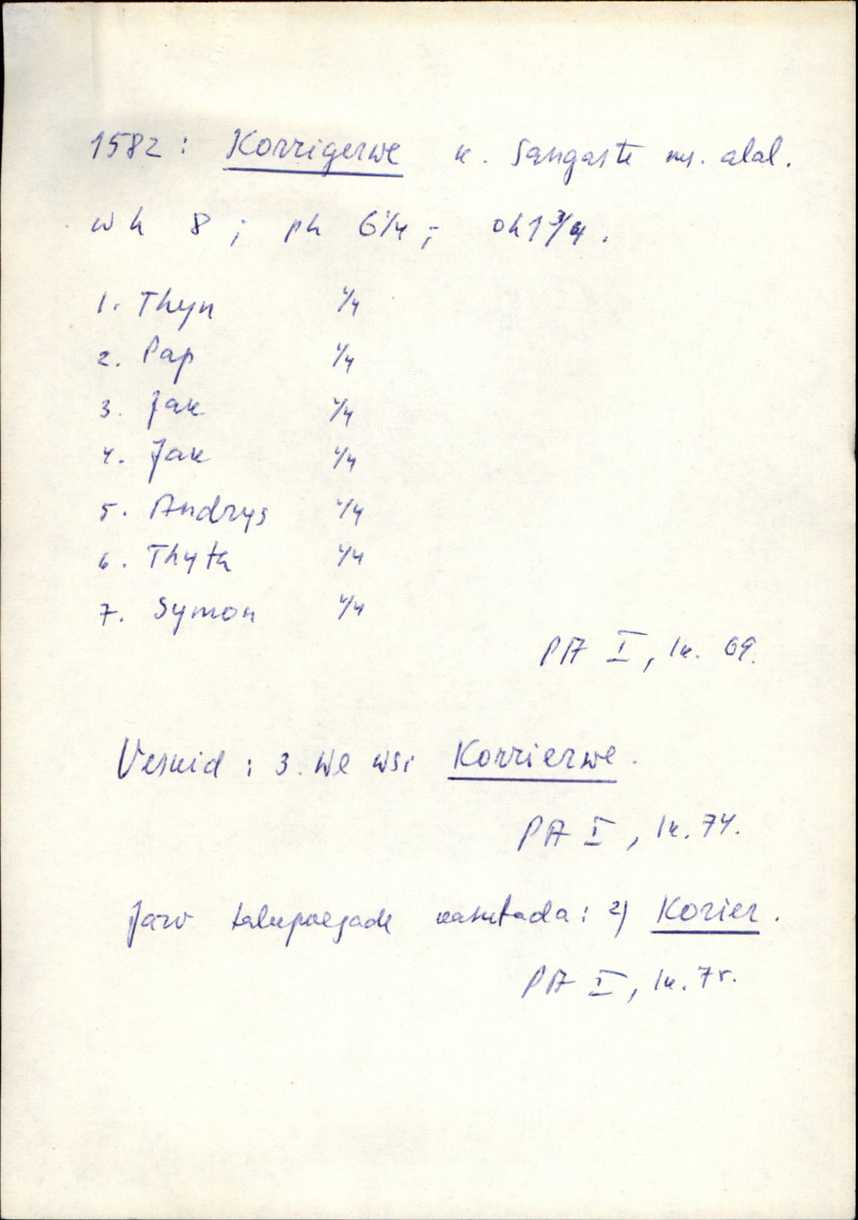 1582: Korrigerwe k. Sangaste ms. alal.
wh 8; ph 6 1/4; oh 1 3/4.
1. Thyn 1/4
2. Pap 1/4
3. Jak 1/4
4. Jak 1/4
5. Andrys 1/4
6. Thyth 1/4
7. Symon 1/4
PA I, lk. 69.
Veskid: 3. We wsi Korrierwe.
PA I, lk. 74.
Järv talupoegade kasutada: 2) Korier.
PA I, lk. 75.